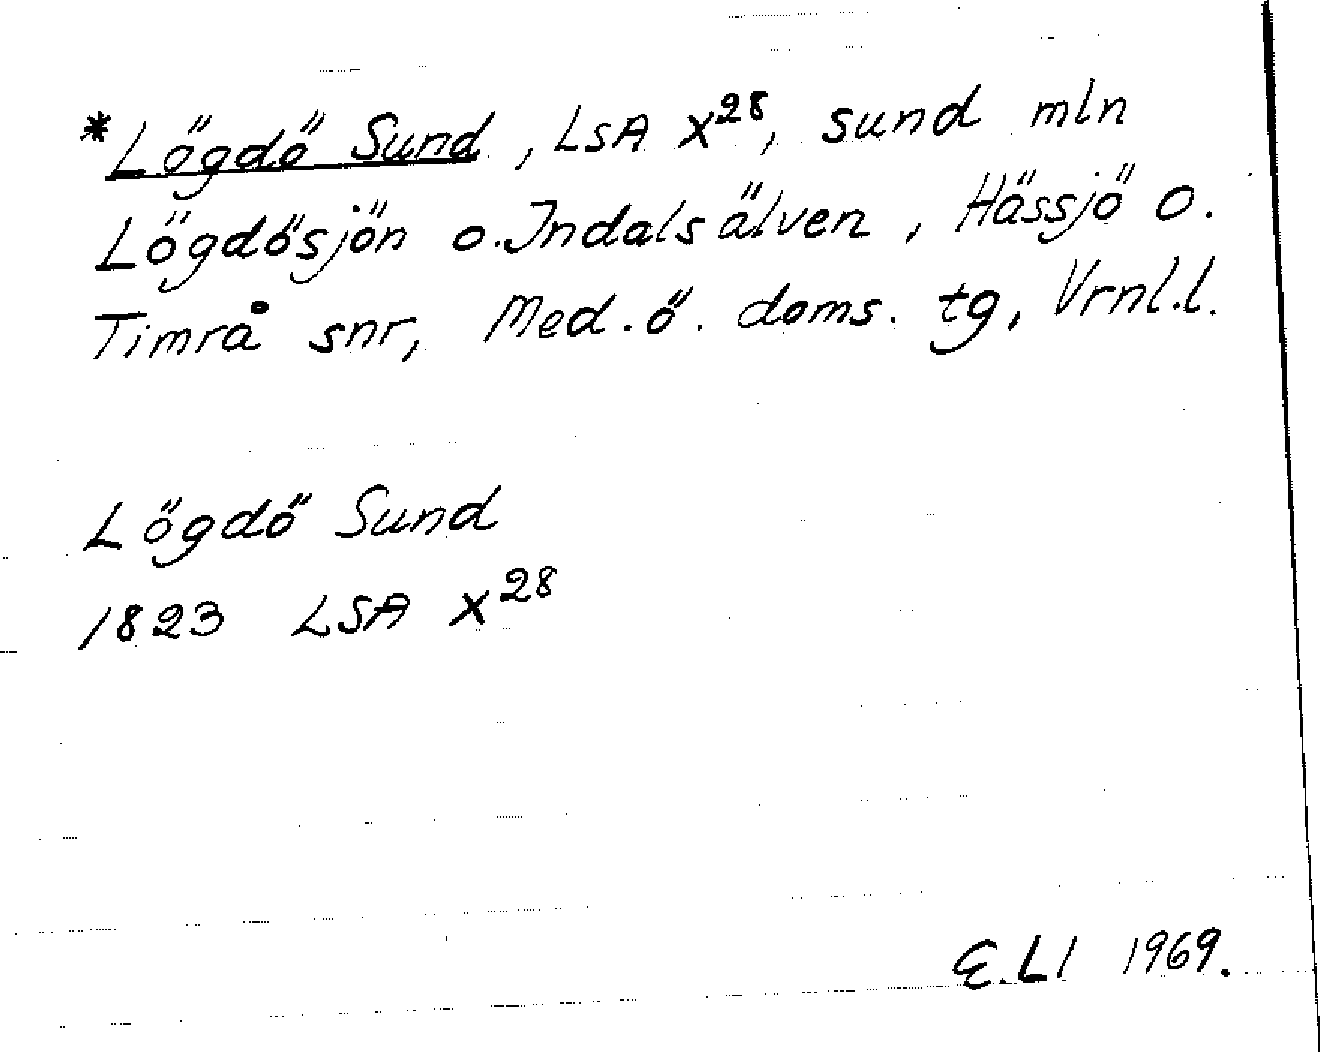 *Lögdö Sund, LSA X28, sund mln
Lögdösjön o. Indalsälven, Hässjö o.
Timrå snr, Med. ö. doms. tg, Vrnl.l.
Lögdö Sund
1823 LSA X28
E.Ll 1969.